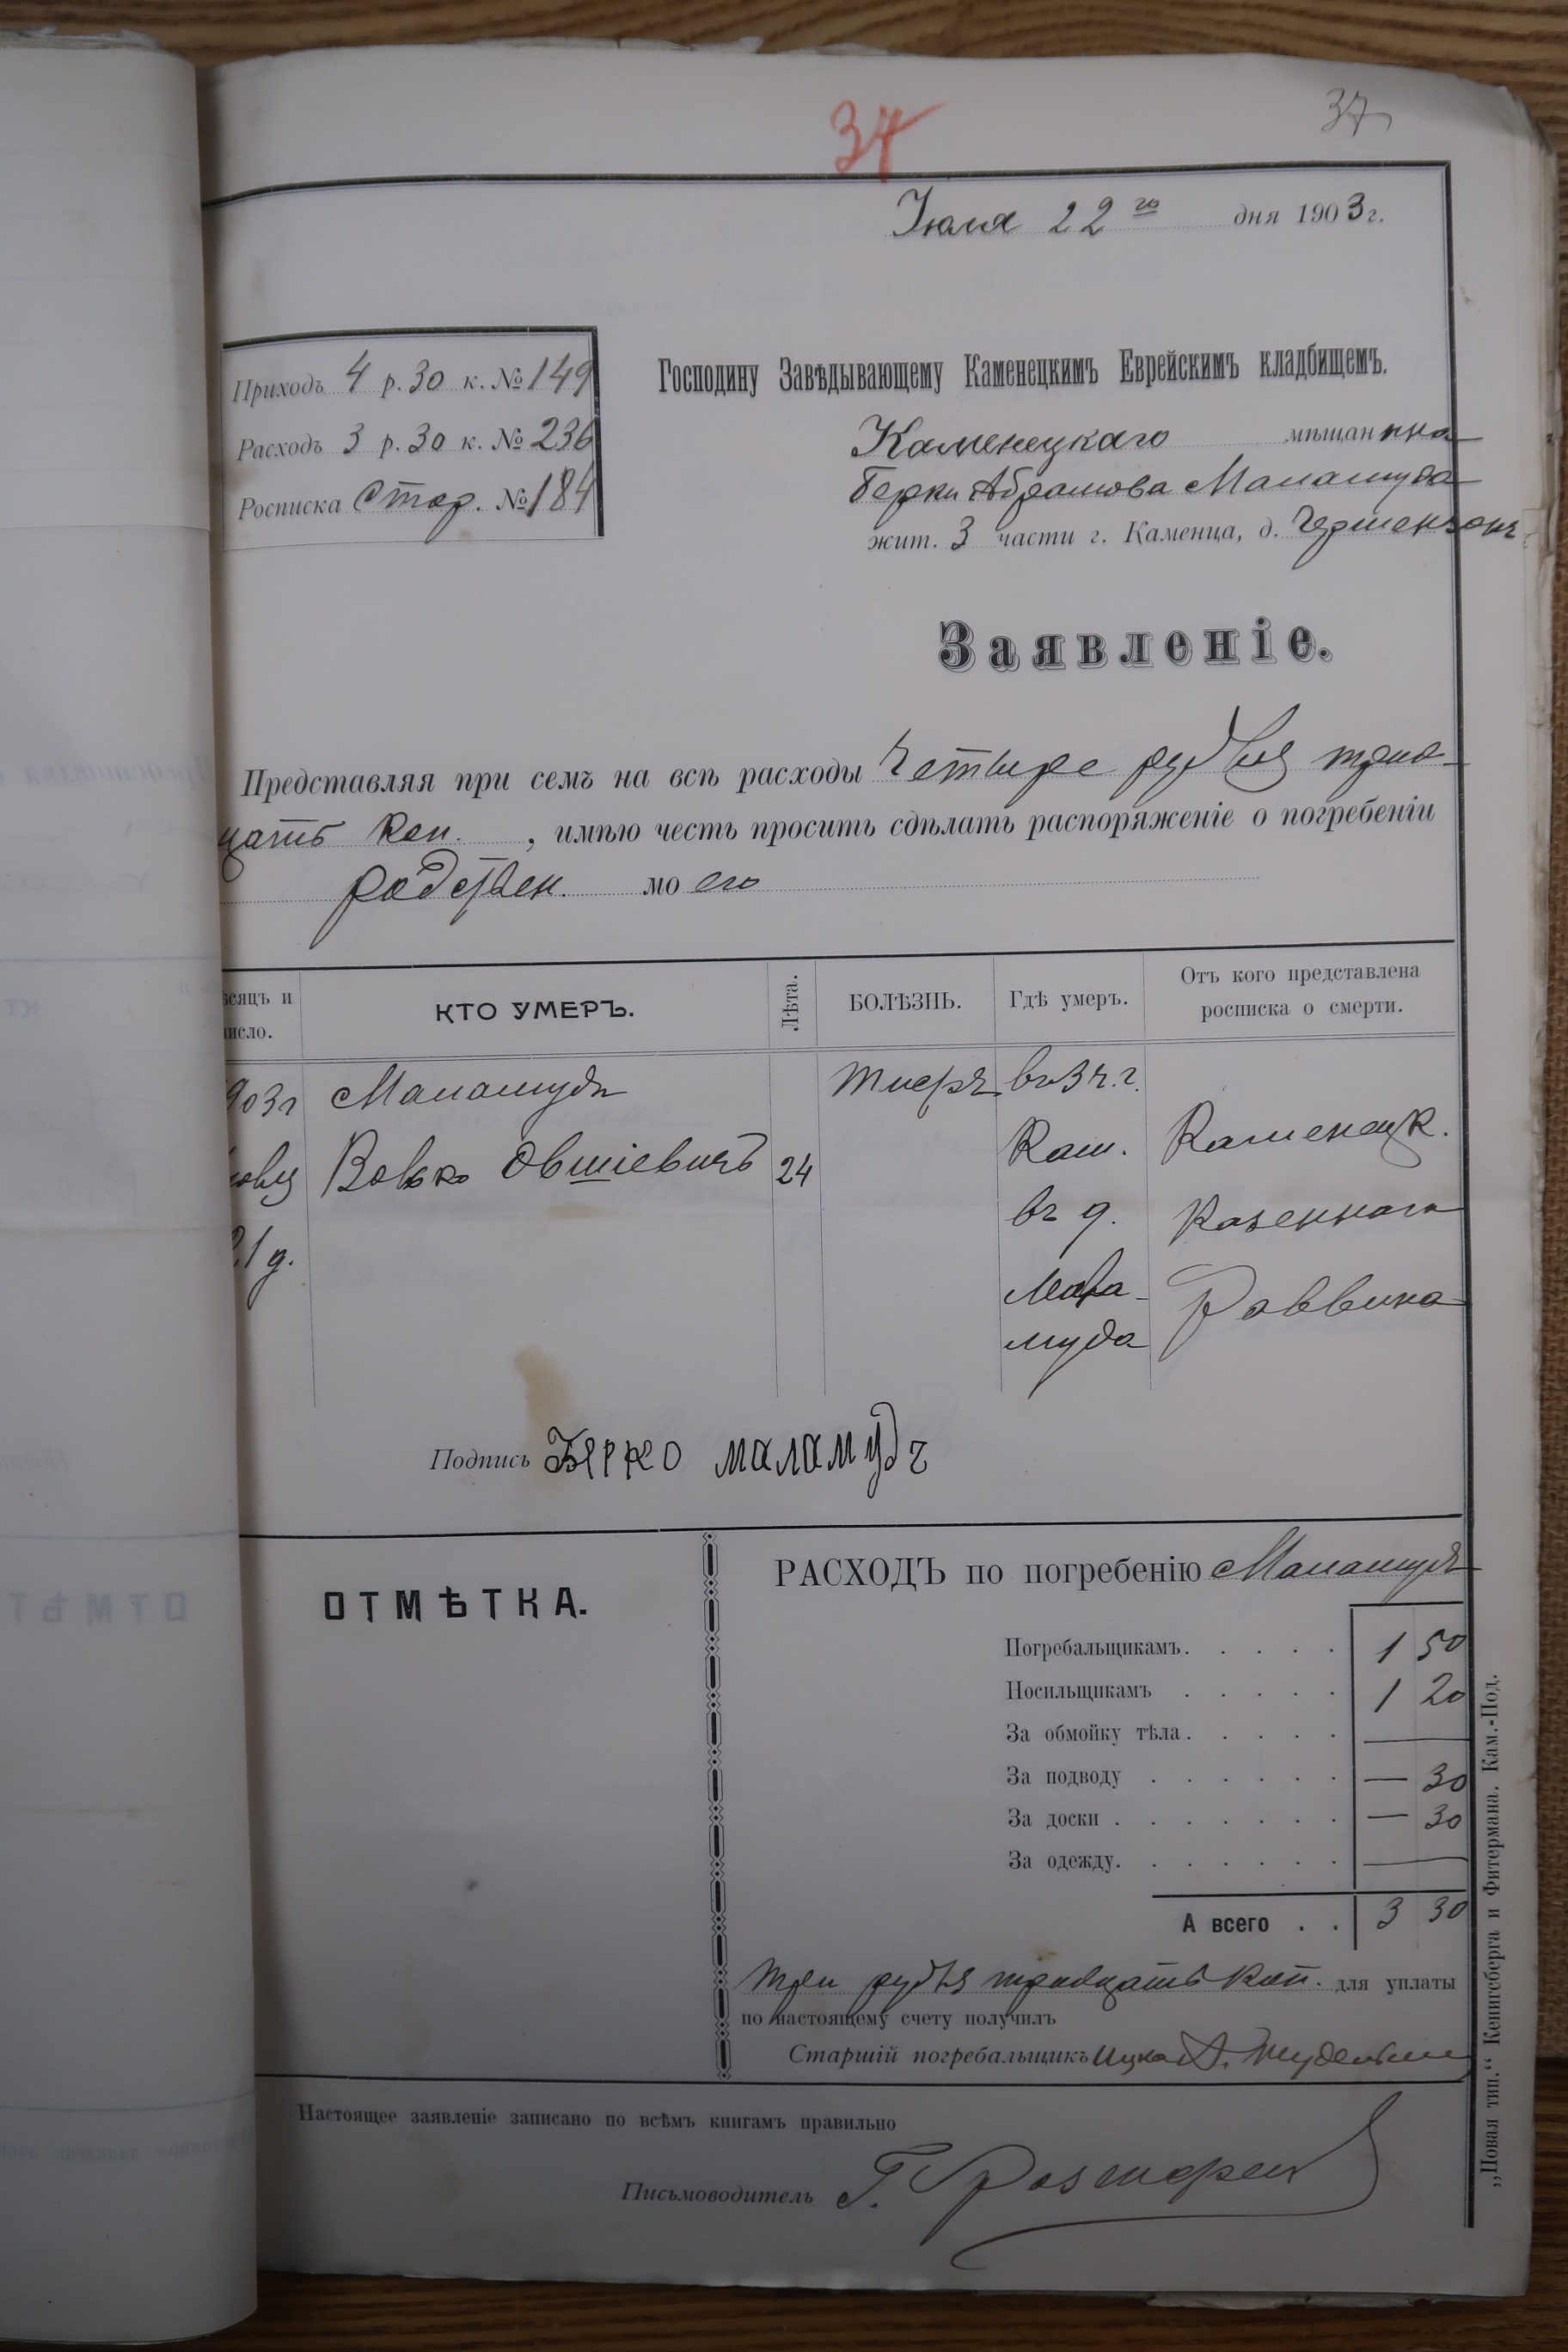 37
37
Іюля 22го дня 1903 г.
Приходъ 4 р. 30 к. № 149
Расходъ 3 р. 30 к. № 236
Росписка Стар. № 184
Господину Завѣдывающему Каменецкимъ Еврейскимъ кладбищемъ.
Каменецкаго мѣщанина
Берки Абрамова Маламуда
жит. 3 части г. Каменца, д.
Заявленіе.
Представляя при семъ на всѣ расходы Четыре рубля трид-
цать коп. , имѣю честь просить сдѣлать распоряженіе о погребеніи
родствен. моего
ѣсяцъ и число.
КТО УМЕРЪ.
Лѣта.
БОЛѢЗНЬ.
Гдѣ умеръ.
Отъ кого представлена
росписка о смерти.
903г Маламудъ въ 3 ч. г.
Волько Овшіевичъ 24 Кам. Каменецк.
21 д. въ д. Казеннаго
Мала- Раввина
муда
Подпись Берко маламудъ
ОТМѢТКА.
РАСХОДЪ по погребенію Маламудъ
Погребальщикамъ. . . . . 1 50
Носильщикамъ . . . . . 1 20
За обмойку тѣла. . . . . —
За подводу . . . . . . — 30
За доски . . . . . . . — 30
За одежду. . . . . . . —
А всего . . 3 30
Три рубля тридцать коп. для уплаты
по настоящему счету получилъ
Старшій погребальщикъ Ицко А.
Настоящее заявленіе записано по всѣмъ книгамъ правильно
Письмоводитель Г.
„Новая тип.“ Кенигсберга и Фитермана. Кам.-Под.